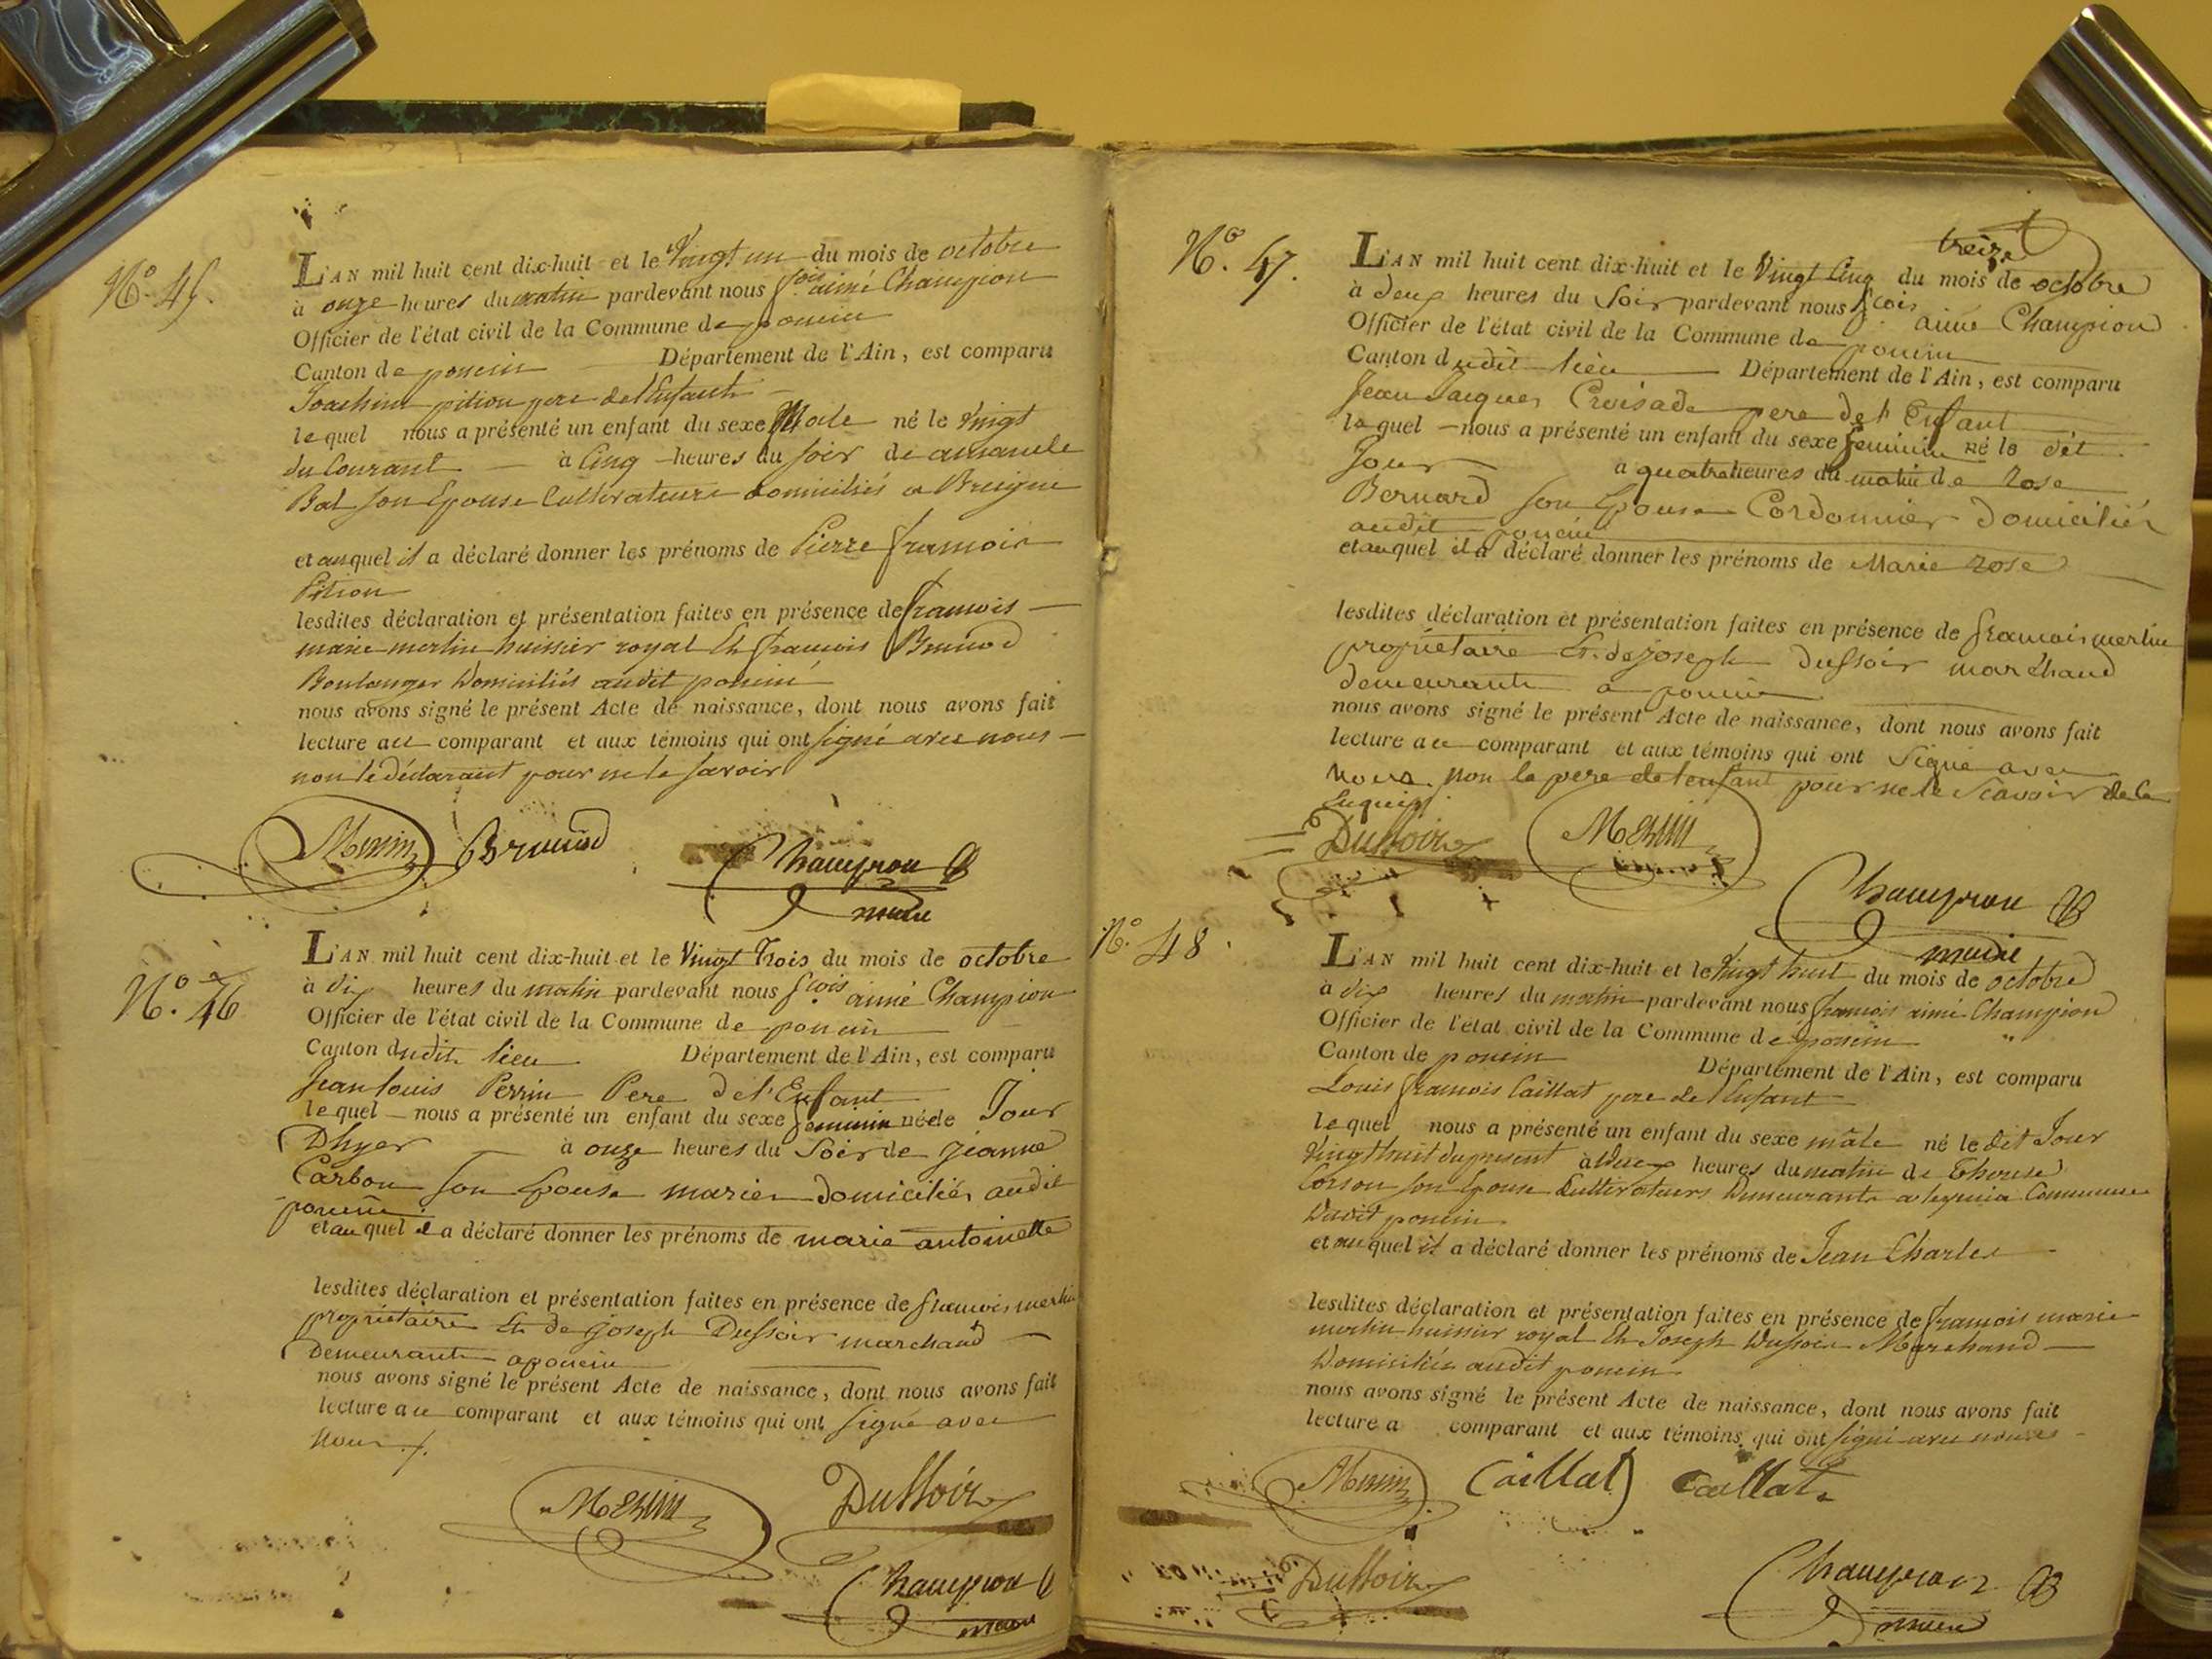 N.° 45.
L'AN mil huit cent dix-huit et le Vingt un du mois de octobre
à onze heures du matin pardevant nous f.ois aimé Champion
Officier de l'état civil de la Commune de poncin
Canton de poncin Département de l'Ain, est comparu
Joachim pition pere de l'Enfant
lequel nous a présenté un enfant du sexe Male né le Vingt
du Courant à Cinq heures du soir de
Bal son Epouse Cultivateurs domiciliés a
et auquel il a déclaré donner les prénoms de Pierre francois
Pition
lesdites déclaration et présentation faites en présence de francois
marie merlin huissier royal Et francois Brunod
Boulanger Domiciliés audit poncin
nous avons signé le présent Acte de naissance, dont nous avons fait
lecture au comparant et aux témoins qui ont signé avec nous
non le déclarant pour ne le savoir
Merlin Brunod
Champion
maire
N.° 46
L'AN mil huit cent dix-huit et le Vingt Trois du mois de octobre
à dix heures du matin pardevant nous f.cois aimé Champion
Officier de l'état civil de la Commune de poncin
Canton dudit lieu Département de l'Ain, est comparu
Jean louis Perrin Pere de l'Enfant
lequel nous a présenté un enfant du sexe feminin né le Jour
Dhyer à onze heures du Soir de jeanne
Carbon son Epouse mariés domiciliés audit
poncin
et auquel il a déclaré donner les prénoms de marie antoinette
lesdites déclaration et présentation faites en présence de francois merlin
propriétaire Et de joseph Dussoir marchand
Demeurants a poncin
nous avons signé le présent Acte de naissance, dont nous avons fait
lecture au comparant et aux témoins qui ont signé avec
nous
Merlin Dussoir
Champion
maire
N.° 47.
treize
L'AN mil huit cent dix-huit et le Vingt Cinq du mois de octobre
à deux heures du Soir pardevant nous f.cois aimé Champion
Officier de l'état civil de la Commune de poncin
Canton dudit lieu Département de l'Ain, est comparu
Jean Jacques Croisade pere de l'Enfant
lequel nous a présenté un enfant du sexe feminin né le dit
Jour a quatre heures du matin de Rose
Bernard son Epouse Cordonnier Domiciliés
audit poncin
et auquel il a déclaré donner les prénoms de Marie Rose
lesdites déclaration et présentation faites en présence de francois merlin
propriétaire Et de joseph Dussoir marchand
demeurants a poncin
nous avons signé le présent Acte de naissance, dont nous avons fait
lecture au comparant et aux témoins qui ont Signé avec
nous non le pere de l'enfant pour ne le Scavoir de ce
Enquis
Dussoir Merlin
Champion
maire
N.° 48
L'AN mil huit cent dix-huit et le Vingt huit du mois de octobre
à dix heures du matin pardevant nous francois aimé Champion
Officier de l'état civil de la Commune de poncin
Canton de poncin Département de l'Ain, est comparu
Louis francois Caillat pere de l'Enfant
lequel nous a présenté un enfant du sexe mâle né le dit Jour
Vingt huit du present à deux heures du matin de Therese
son Epouse Cultivateurs Demeurants a Commune
Dudit poncin
et auquel il a déclaré donner les prénoms de Jean Charles
lesdites déclaration et présentation faites en présence de francois marie
merlin huissier royal Et Joseph Dussoir Marchand
Domiciliés audit poncin
nous avons signé le présent Acte de naissance, dont nous avons fait
lecture a comparant et aux témoins qui ont signé avec nous
Merlin Caillat Caillat
Dussoir Champion
maire